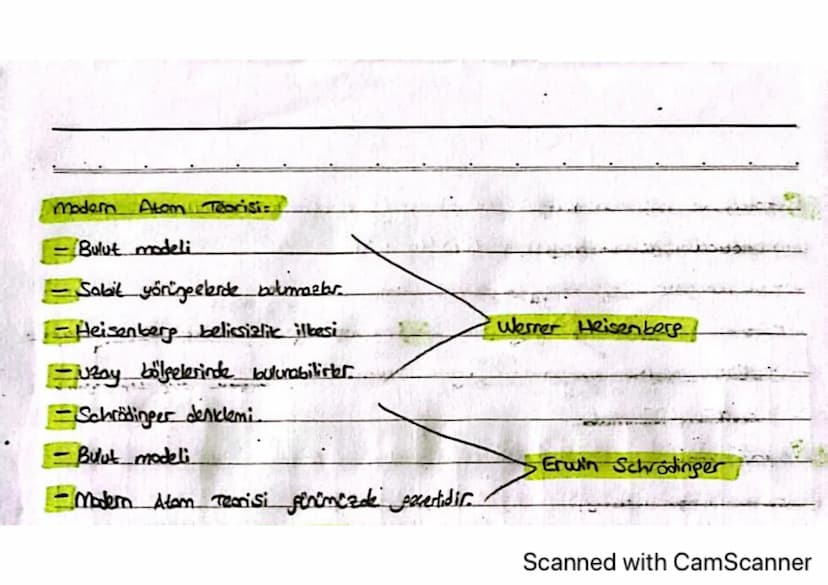 Modern Atom Teorisi=
- Bulut modeli
- Sabit yörüngelerde bulunmazlar.
- Heisenberg belirsizlik ilkesi
Werner Heisenberg
- uzay bölgelerinde bulunabilirler.
- Schrödinger denklemi.
- Bulut modeli
Erwin Schrödinger
- Modern Atom Teorisi günümüzde geçerlidir.
Scanned with CamScanner